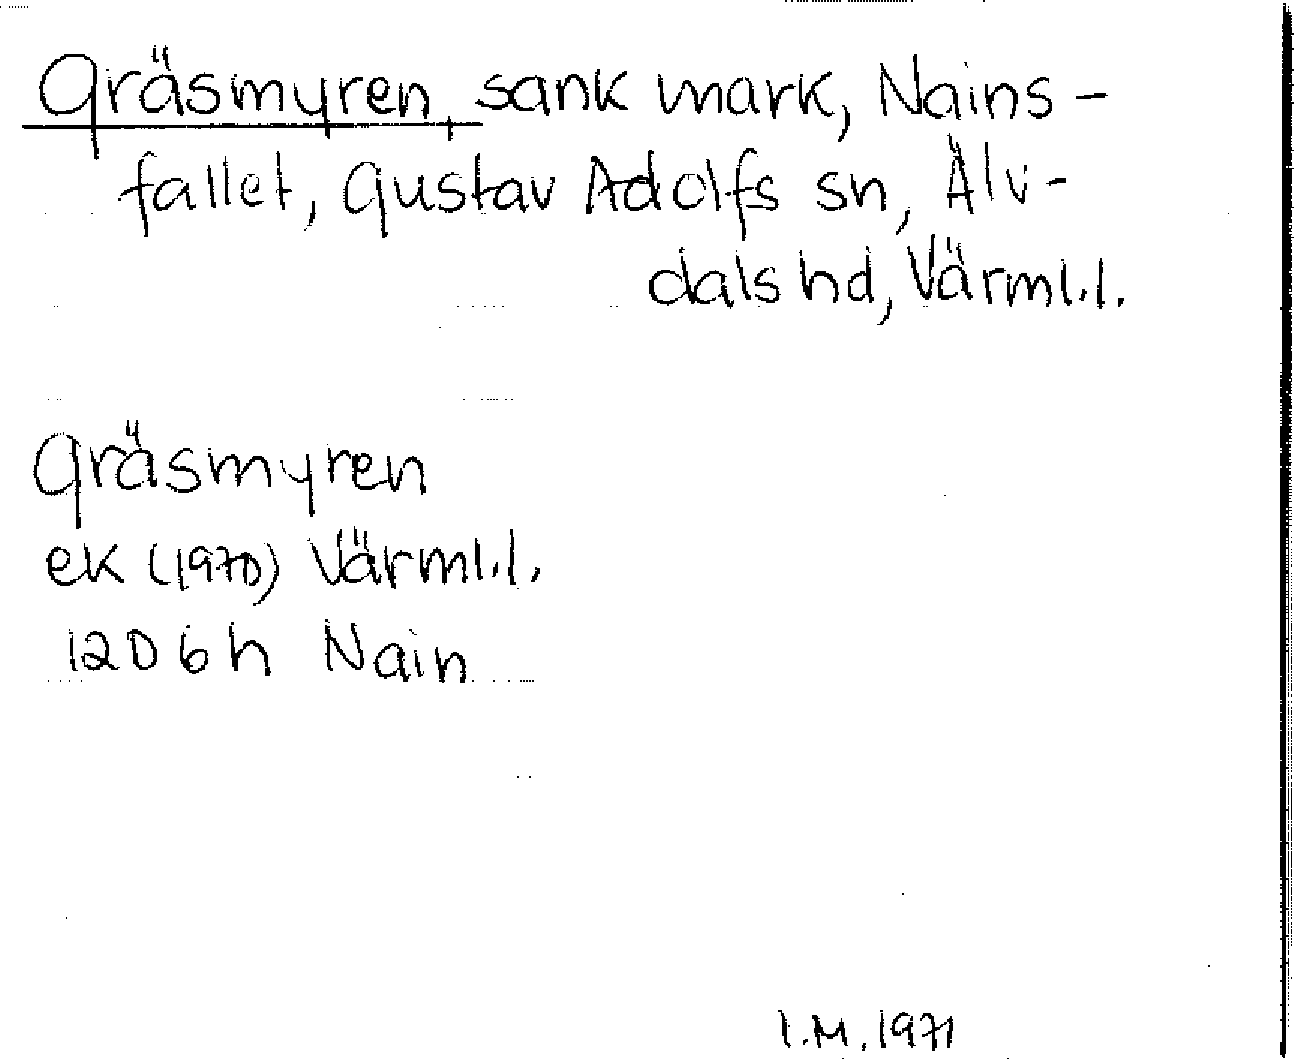 Gräsmyren, sank mark, Nains-
fallet, Gustav Adolfs sn, Älv-
dals hd, Värml.l.
Gräsmyren
ek (1970) Värml.l.
12D 6h Nain
I.M. 1971